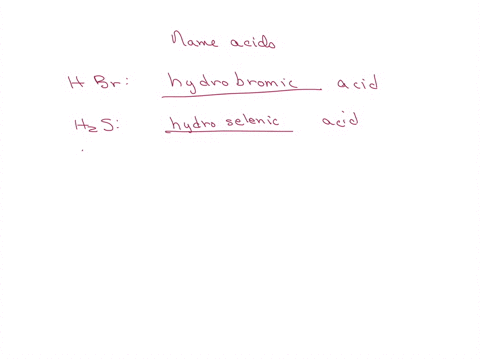 Name acids
HBr: hydrobromic acid
H₂S: hydro selenic acid